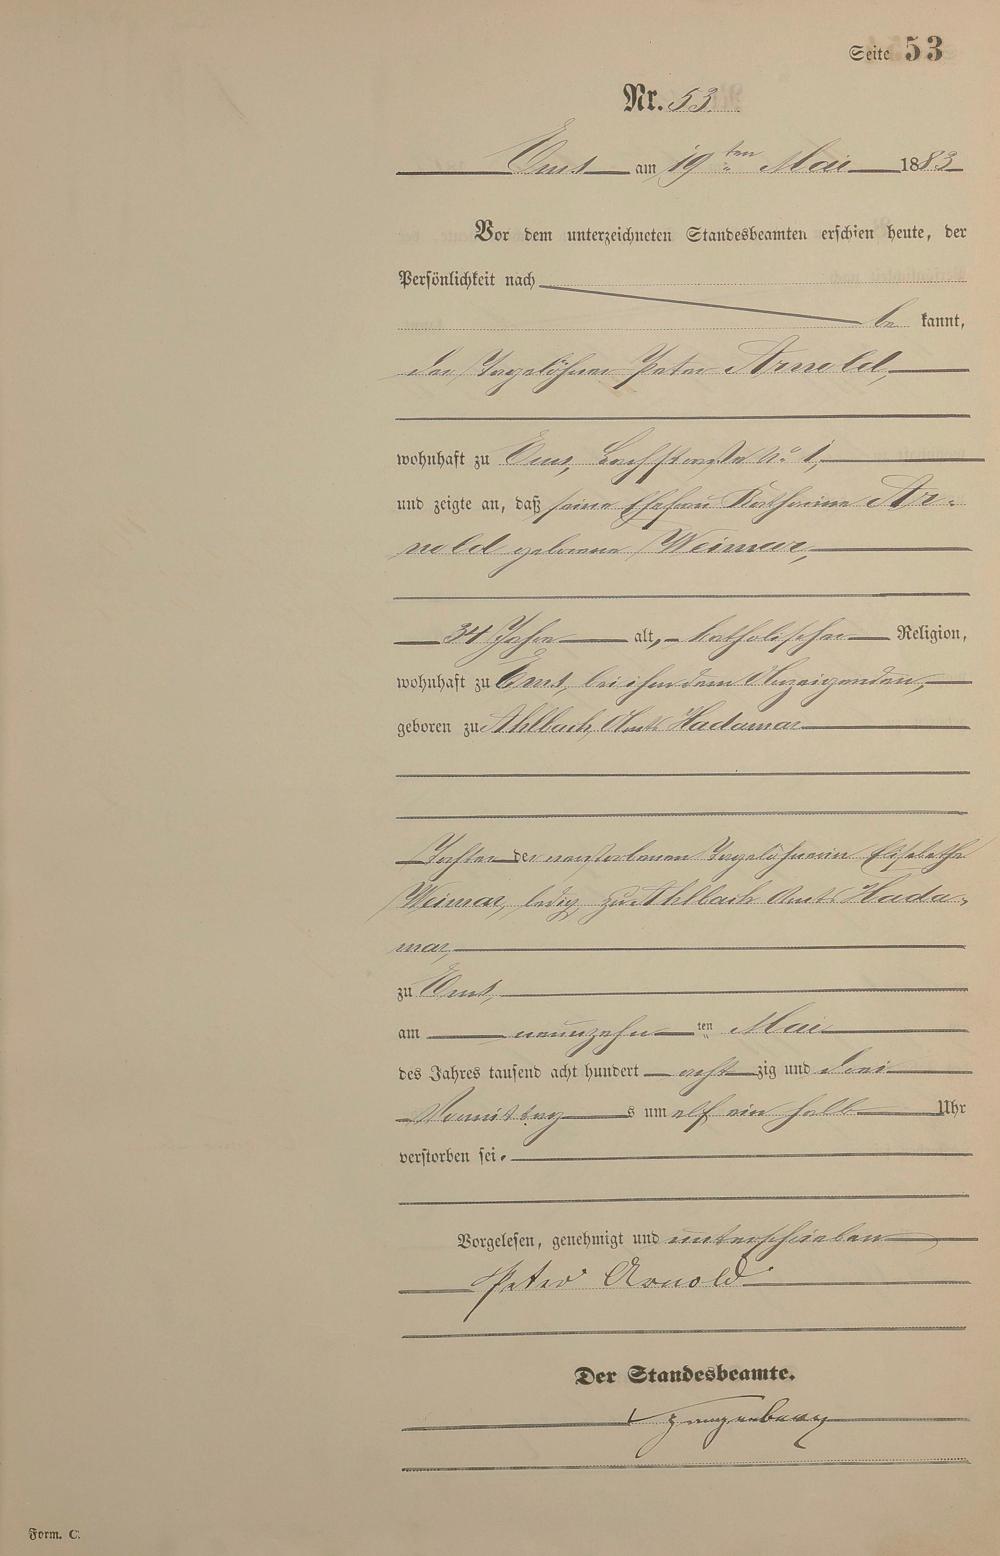 Seite 53
Nr. 53.
Ems am 19ten Mai 1883
Vor dem unterzeichneten Standesbeamten erschien heute, der
Persönlichkeit nach
be kannt,
der Tagelöhner Peter Arnold,
wohnhaft zu Ems, Bachstraße No 1,
und zeigte an, daß seine Ehefrau Katharina Ar-
nold geborene Weimar,
34 Jahre alt, katholischer Religion,
wohnhaft zu Ems, bei ihm dem Anzeigenden,
geboren zu Ahlbach, Amts Hadamar
Tochter der verstorbenen Tagelöhnerin Elisabetha
Weimar, ledig, zu Ahlbach Amts Hada-
mar,
zu Ems,
am neunzehnten Mai
des Jahres tausend acht hundert achtzig und drei
Vormittags um elf ein halb Uhr
verstorben sei.
Vorgelesen, genehmigt und unterschrieben
Peter Arnold
Der Standesbeamte.
Form. C.